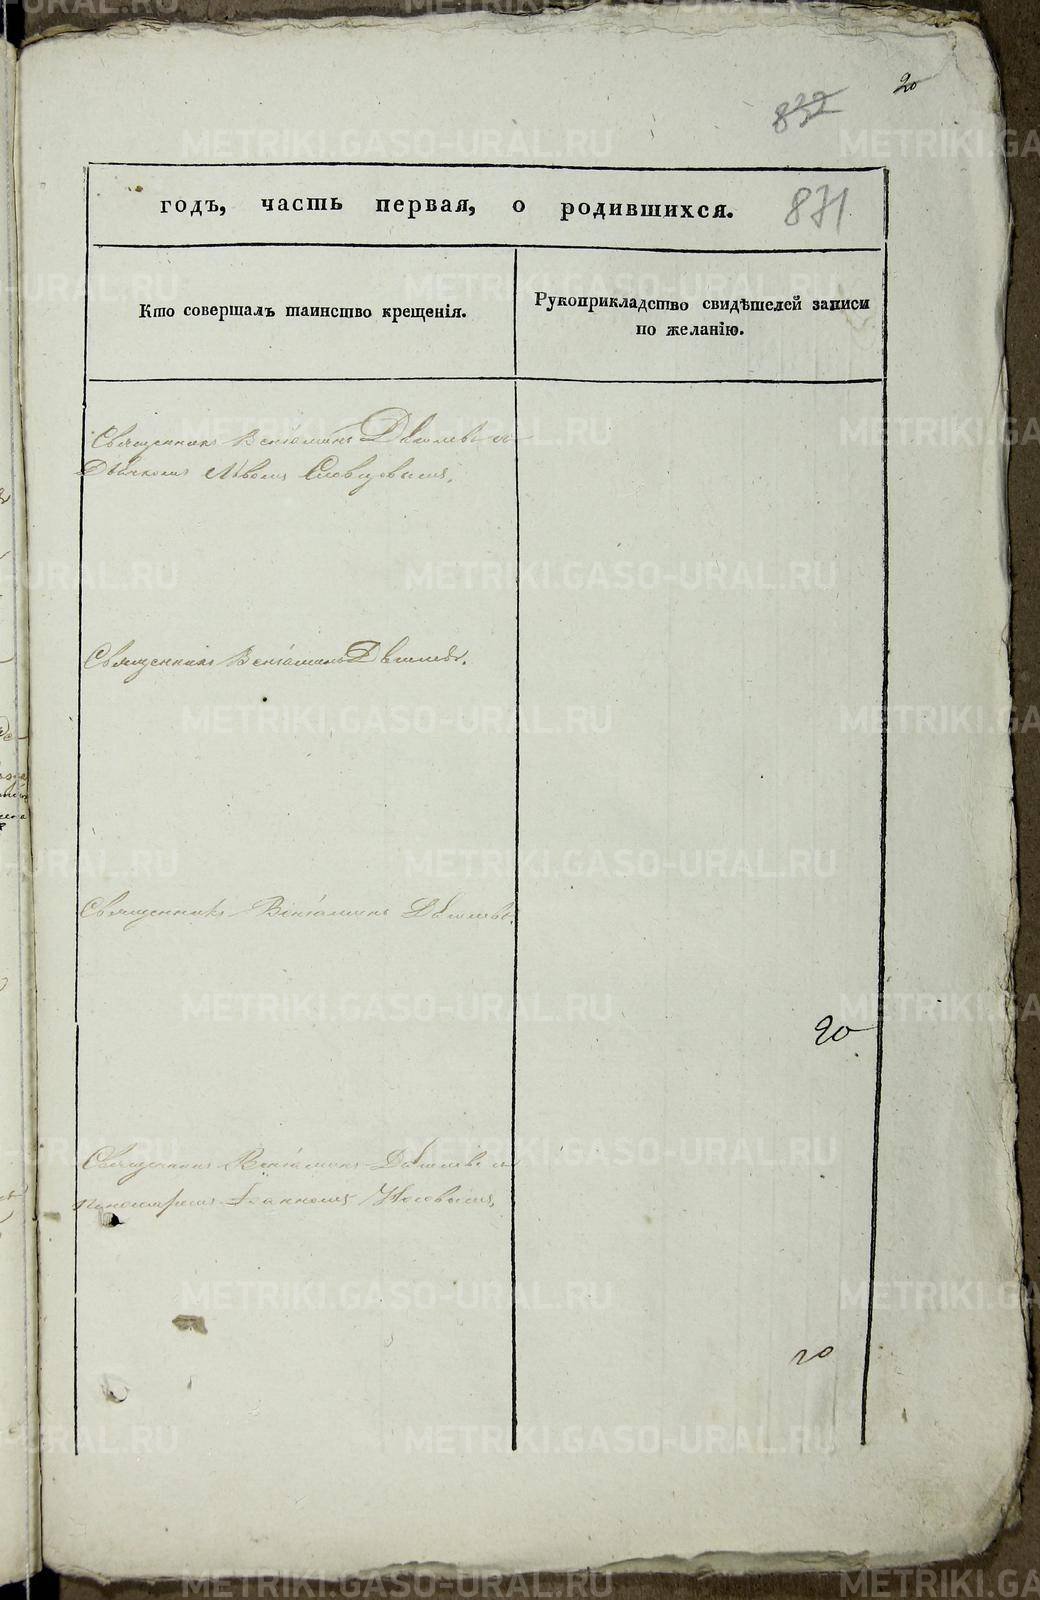 20
832
годъ, часть первая, о родившихся. 871
Кто совершалъ таинство крещенія.
Рукоприкладство свидѣтелей записи
по желанію.
Священникъ Веніаминъ съ
Дьячкомъ Львомъ Словцовымъ.
Священникъ Веніаминъ
Священникъ Веніаминъ
20
Священникъ Веніаминъ съ
пономаремъ Іоанномъ Носовымъ.
20
METRIKI.GASO-URAL.RU